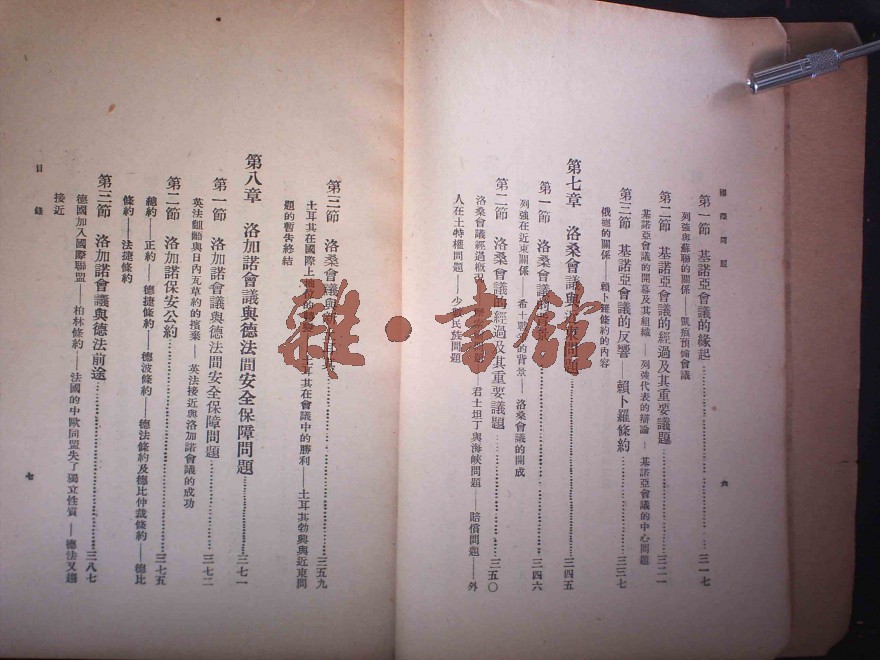 國際問題
第一節 基諾亞會議的緣起……三一七
列強與蘇聯的關係——覬痕預備會議
第二節 基諾亞會議的經過及其重要議題……三二一
基諾亞會議的開幕及其組織——列強代表的辯論——基諾亞會議的中心問題
第三節 基諾亞會議的反響——賴卜羅條約……三三七
俄德的關係——賴卜羅條約的內容
第七章 洛桑會議與近東問題……三四五
第一節 洛桑會議的背景……三四六
列強在近東關係——希土戰爭的背景——洛桑會議的開成
第二節 洛桑會議的經過及其重要議題……三五〇
洛桑會議經過概況——君士坦丁與海峽問題——賠償問題——外
人在土特權問題——少數民族問題
六
第三節 洛桑會議與……三五九
土耳其在國際上地位的——土耳其在會議中的勝利——土耳其勃興與近東問
題的暫告終結
第八章 洛加諾會議與德法間安全保障問題……三七一
第一節 洛加諾會議與德法間安全保障問題……三七二
英法齟齬與日內瓦草約的擯棄——英法接近與洛加諾會議的成功
第二節 洛加諾保安公約……三七五
總約——正約——德捷條約——德波條約——德法條約及德比仲裁條約——德比
條約——法捷條約
第三節 洛加諾會議與德法前途……三八七
德國加入國際聯盟——柏林條約——法國的中歐同盟失了獨立性質——德法又趨
接近
目錄
七
雜·書館